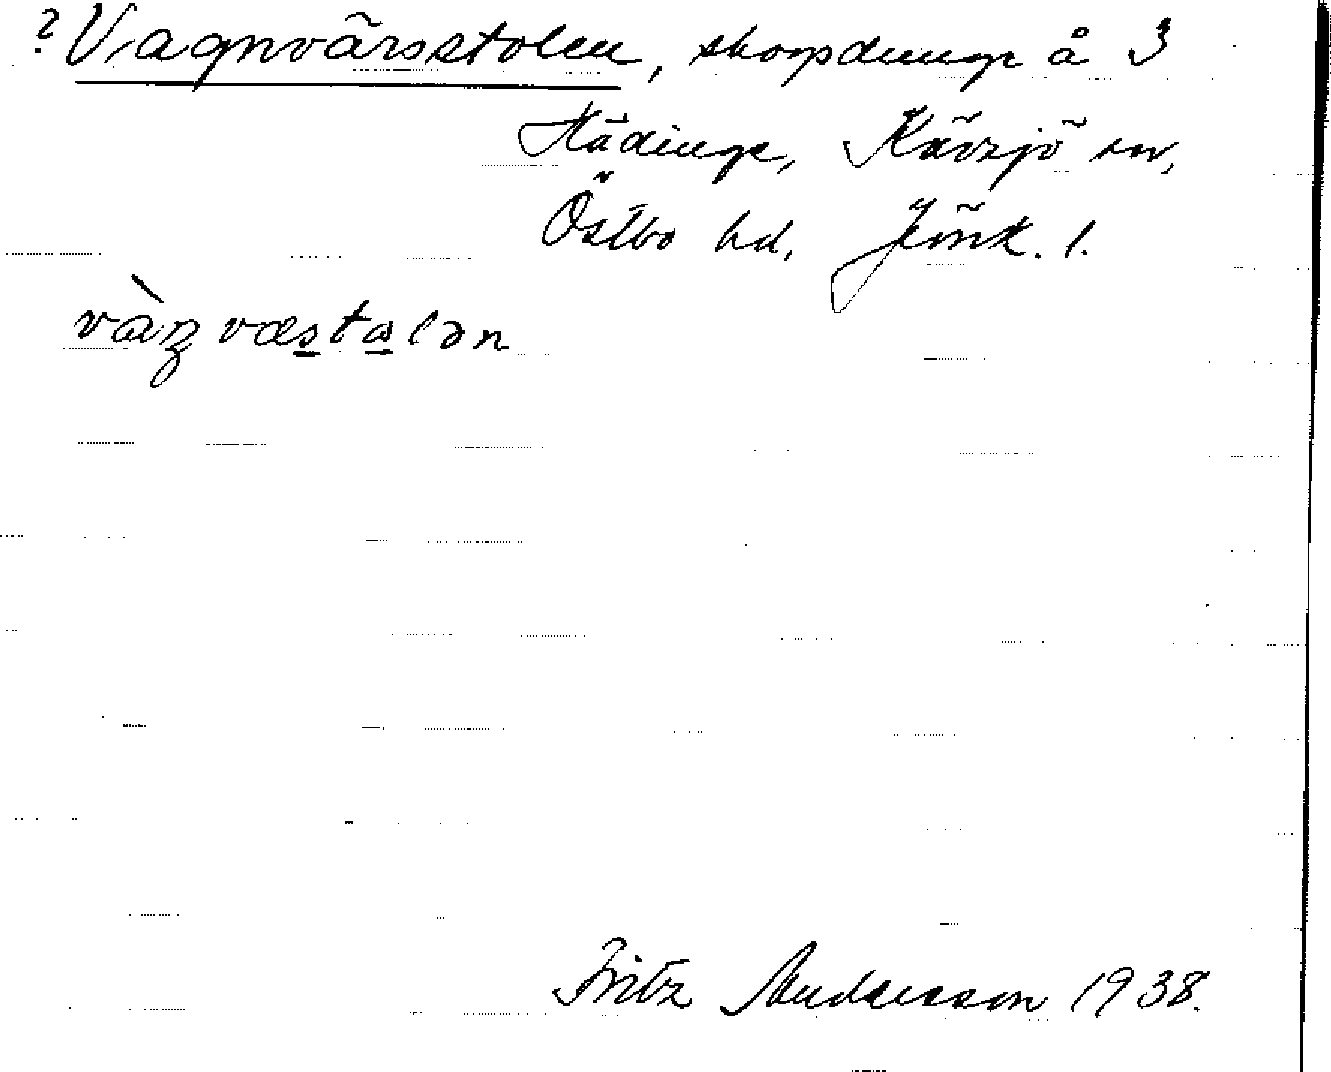 ? Vagnvärsstolen, skogsdunge å 3
Hädinge, Kävsjö sn,
Östbo hd, Jönk. l.
vàgvæstalən
Fritz Andersson 1938.